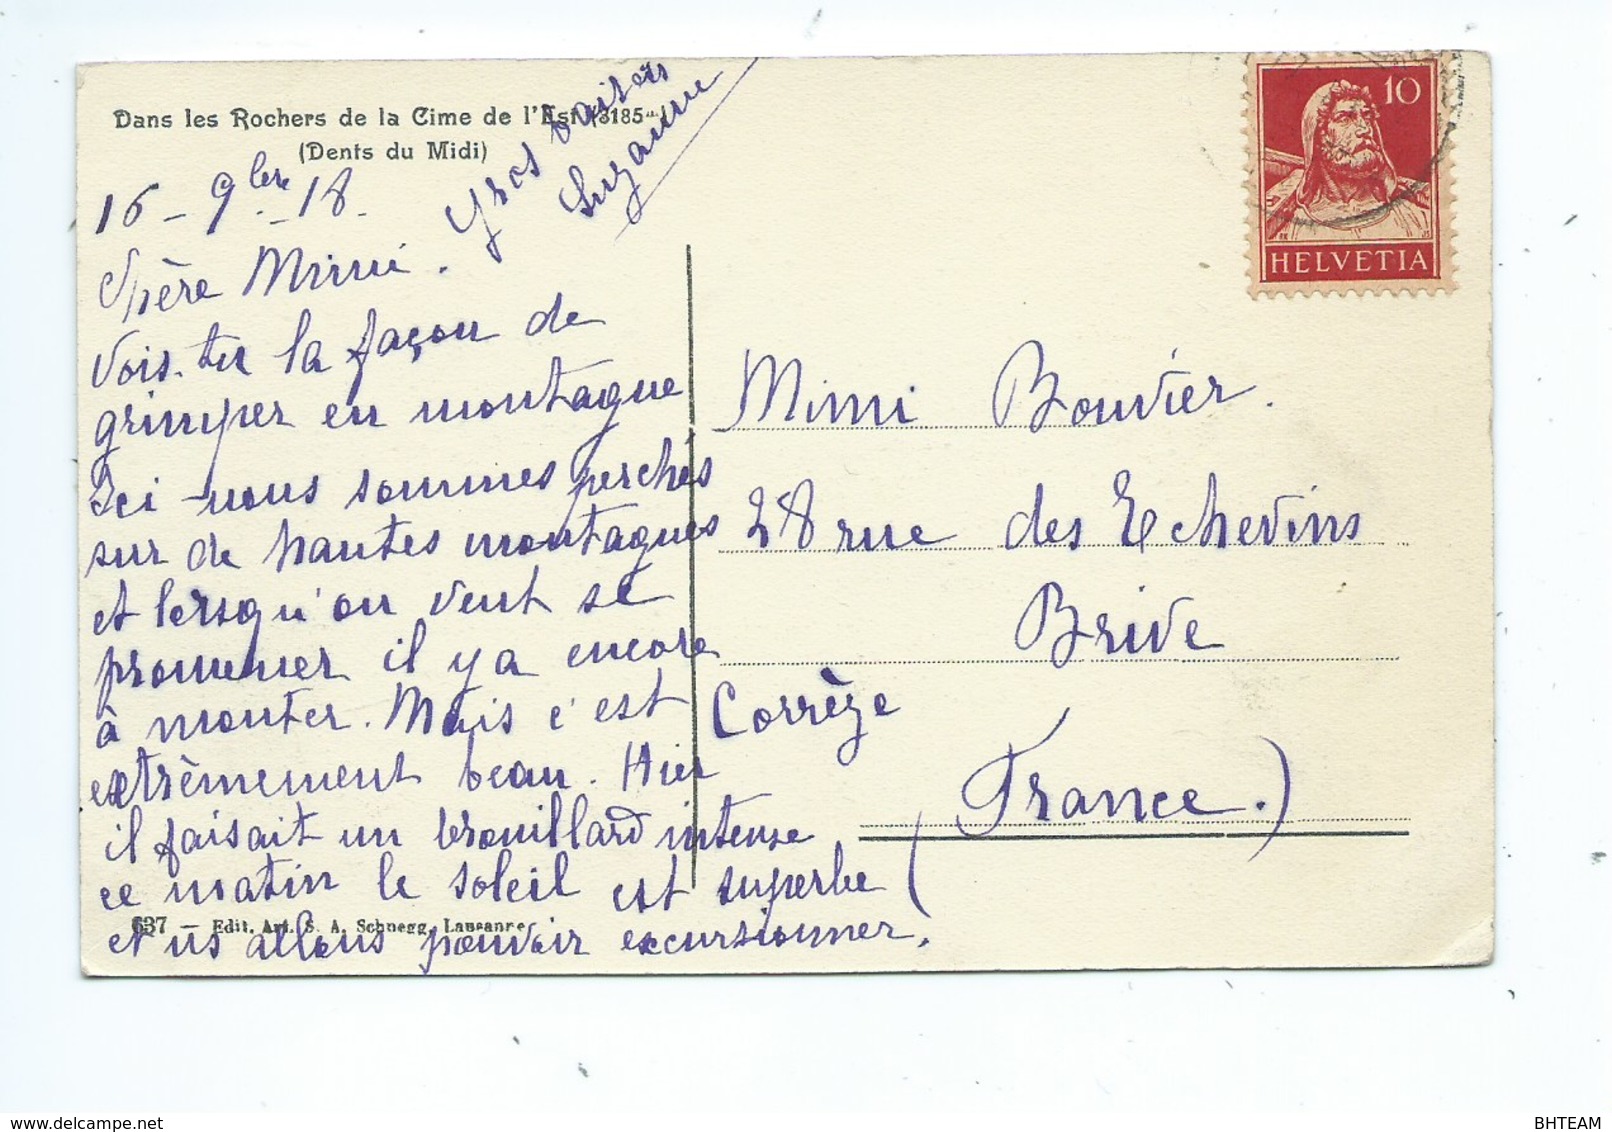 Dans les Rochers de la Cime de l'Est (3185 m)
(Dents du Midi)
Gros baisers
Suzanne
16 - 9bre - 18.
Chère Mimi.
Vois-tu la façon de
grimper en montagne
Ici nous sommes perchés
sur de hautes montagnes
et lorsqu'on veut se
promener il y a encore
à monter. Mais c'est
extrèmement beau. Hier
il faisait un brouillard intense
ce matin le soleil est superbe
et ns allons pouvoir excursionner.
637 - Edit. Art. S. A. Schnegg, Lausanne
10
HELVETIA
Mimi Bouvier.
28 rue des Echevins
Brive
Corrèze
(France.)
BHTEAM